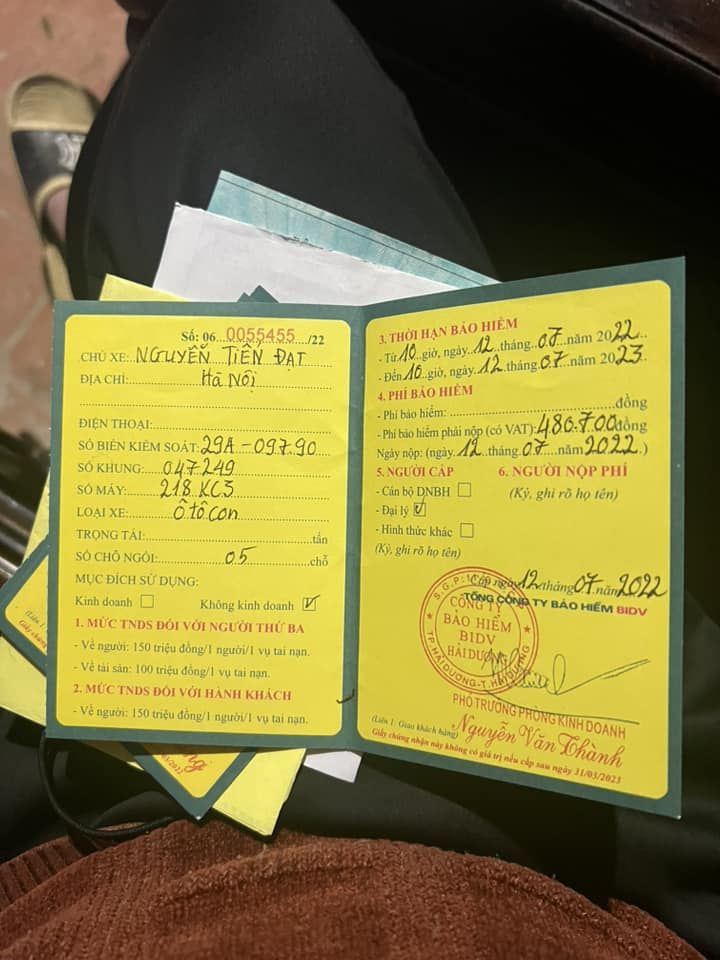 Số: 06...0055455.../22
CHỦ XE: NGUYỄN TIẾN ĐẠT
ĐỊA CHỈ: Hà Nội
ĐIỆN THOẠI:
SỐ BIỂN KIỂM SOÁT: 29A - 097.90
SỐ KHUNG: 047249
SỐ MÁY: 218 KC3
LOẠI XE: Ô tô con
TRỌNG TẢI: tấn
SỐ CHỖ NGỒI: 05 chỗ
MỤC ĐÍCH SỬ DỤNG:
Kinh doanh ☐ Không kinh doanh ☑
1. MỨC TNDS ĐỐI VỚI NGƯỜI THỨ BA
- Về người: 150 triệu đồng/1 người/1 vụ tai nạn.
- Về tài sản: 100 triệu đồng/1 vụ tai nạn.
2. MỨC TNDS ĐỐI VỚI HÀNH KHÁCH
- Về người: 150 triệu đồng/1 người/1 vụ tai nạn.
3. THỜI HẠN BẢO HIỂM
- Từ 10 giờ, ngày 12 tháng 07 năm 2022
- Đến 10 giờ, ngày 12 tháng 07 năm 2023
4. PHÍ BẢO HIỂM
- Phí bảo hiểm: đồng
- Phí bảo hiểm phải nộp (có VAT): 480.700 đồng
Ngày nộp: (ngày 12 tháng 07 năm 2022.)
5. NGƯỜI CẤP 6. NGƯỜI NỘP PHÍ
- Cán bộ DNBH ☐ (Ký, ghi rõ họ tên)
- Đại lý ☑
- Hình thức khác ☐
(Ký, ghi rõ họ tên)
Cấp ngày 12 tháng 07 năm 2022
TỔNG CÔNG TY BẢO HIỂM BIDV
CÔNG TY
BẢO HIỂM
BIDV
HẢI DƯƠNG
TP.HẢI DƯƠNG-T.HẢI DƯƠNG
PHÓ TRƯỞNG PHÒNG KINH DOANH
Nguyễn Văn Thành
(Liên 1: Giao khách hàng)
Giấy chứng nhận này không có giá trị nếu cấp sau ngày 31/03/2023